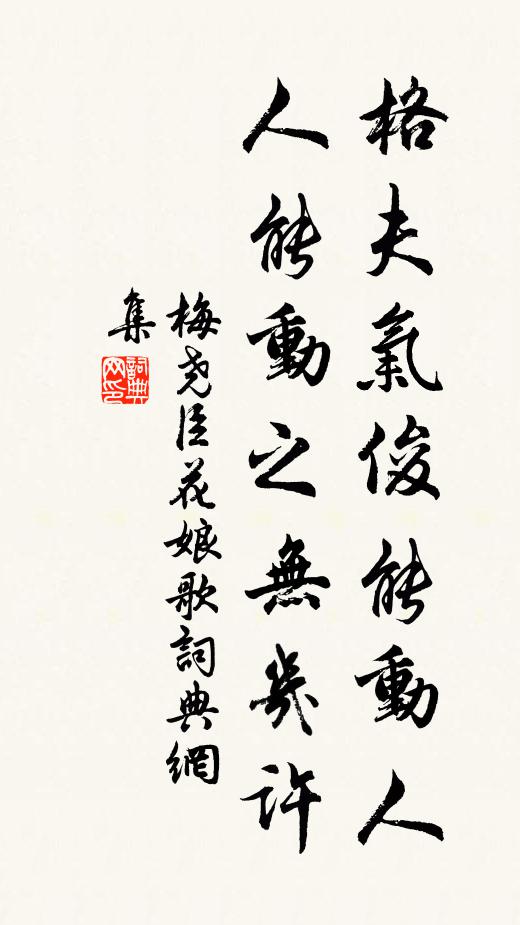 格夫氣俊能動人
人能動之無幾許
梅堯臣花娘歌詞典網
集
詞典
网印